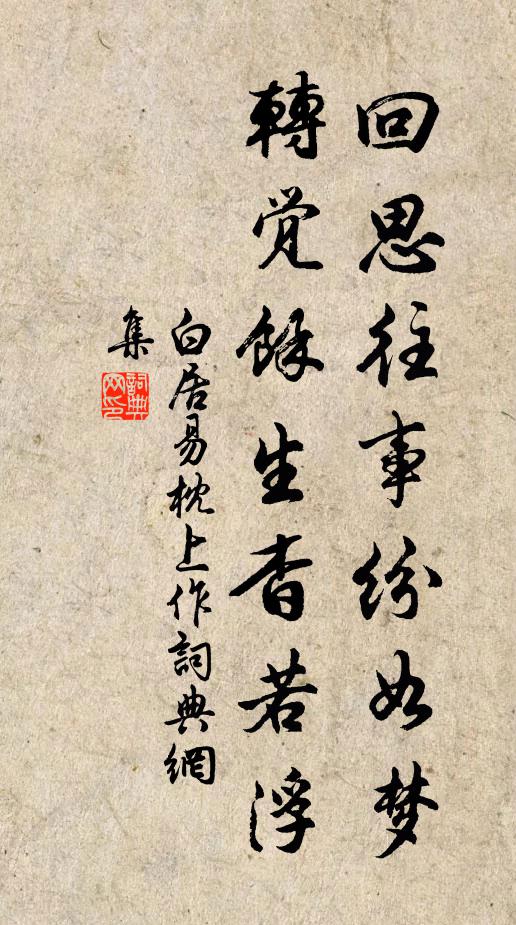 回思往事紛如梦
轉觉餘生杳若浮
白居易枕上作詞典網
集
詞典
网印